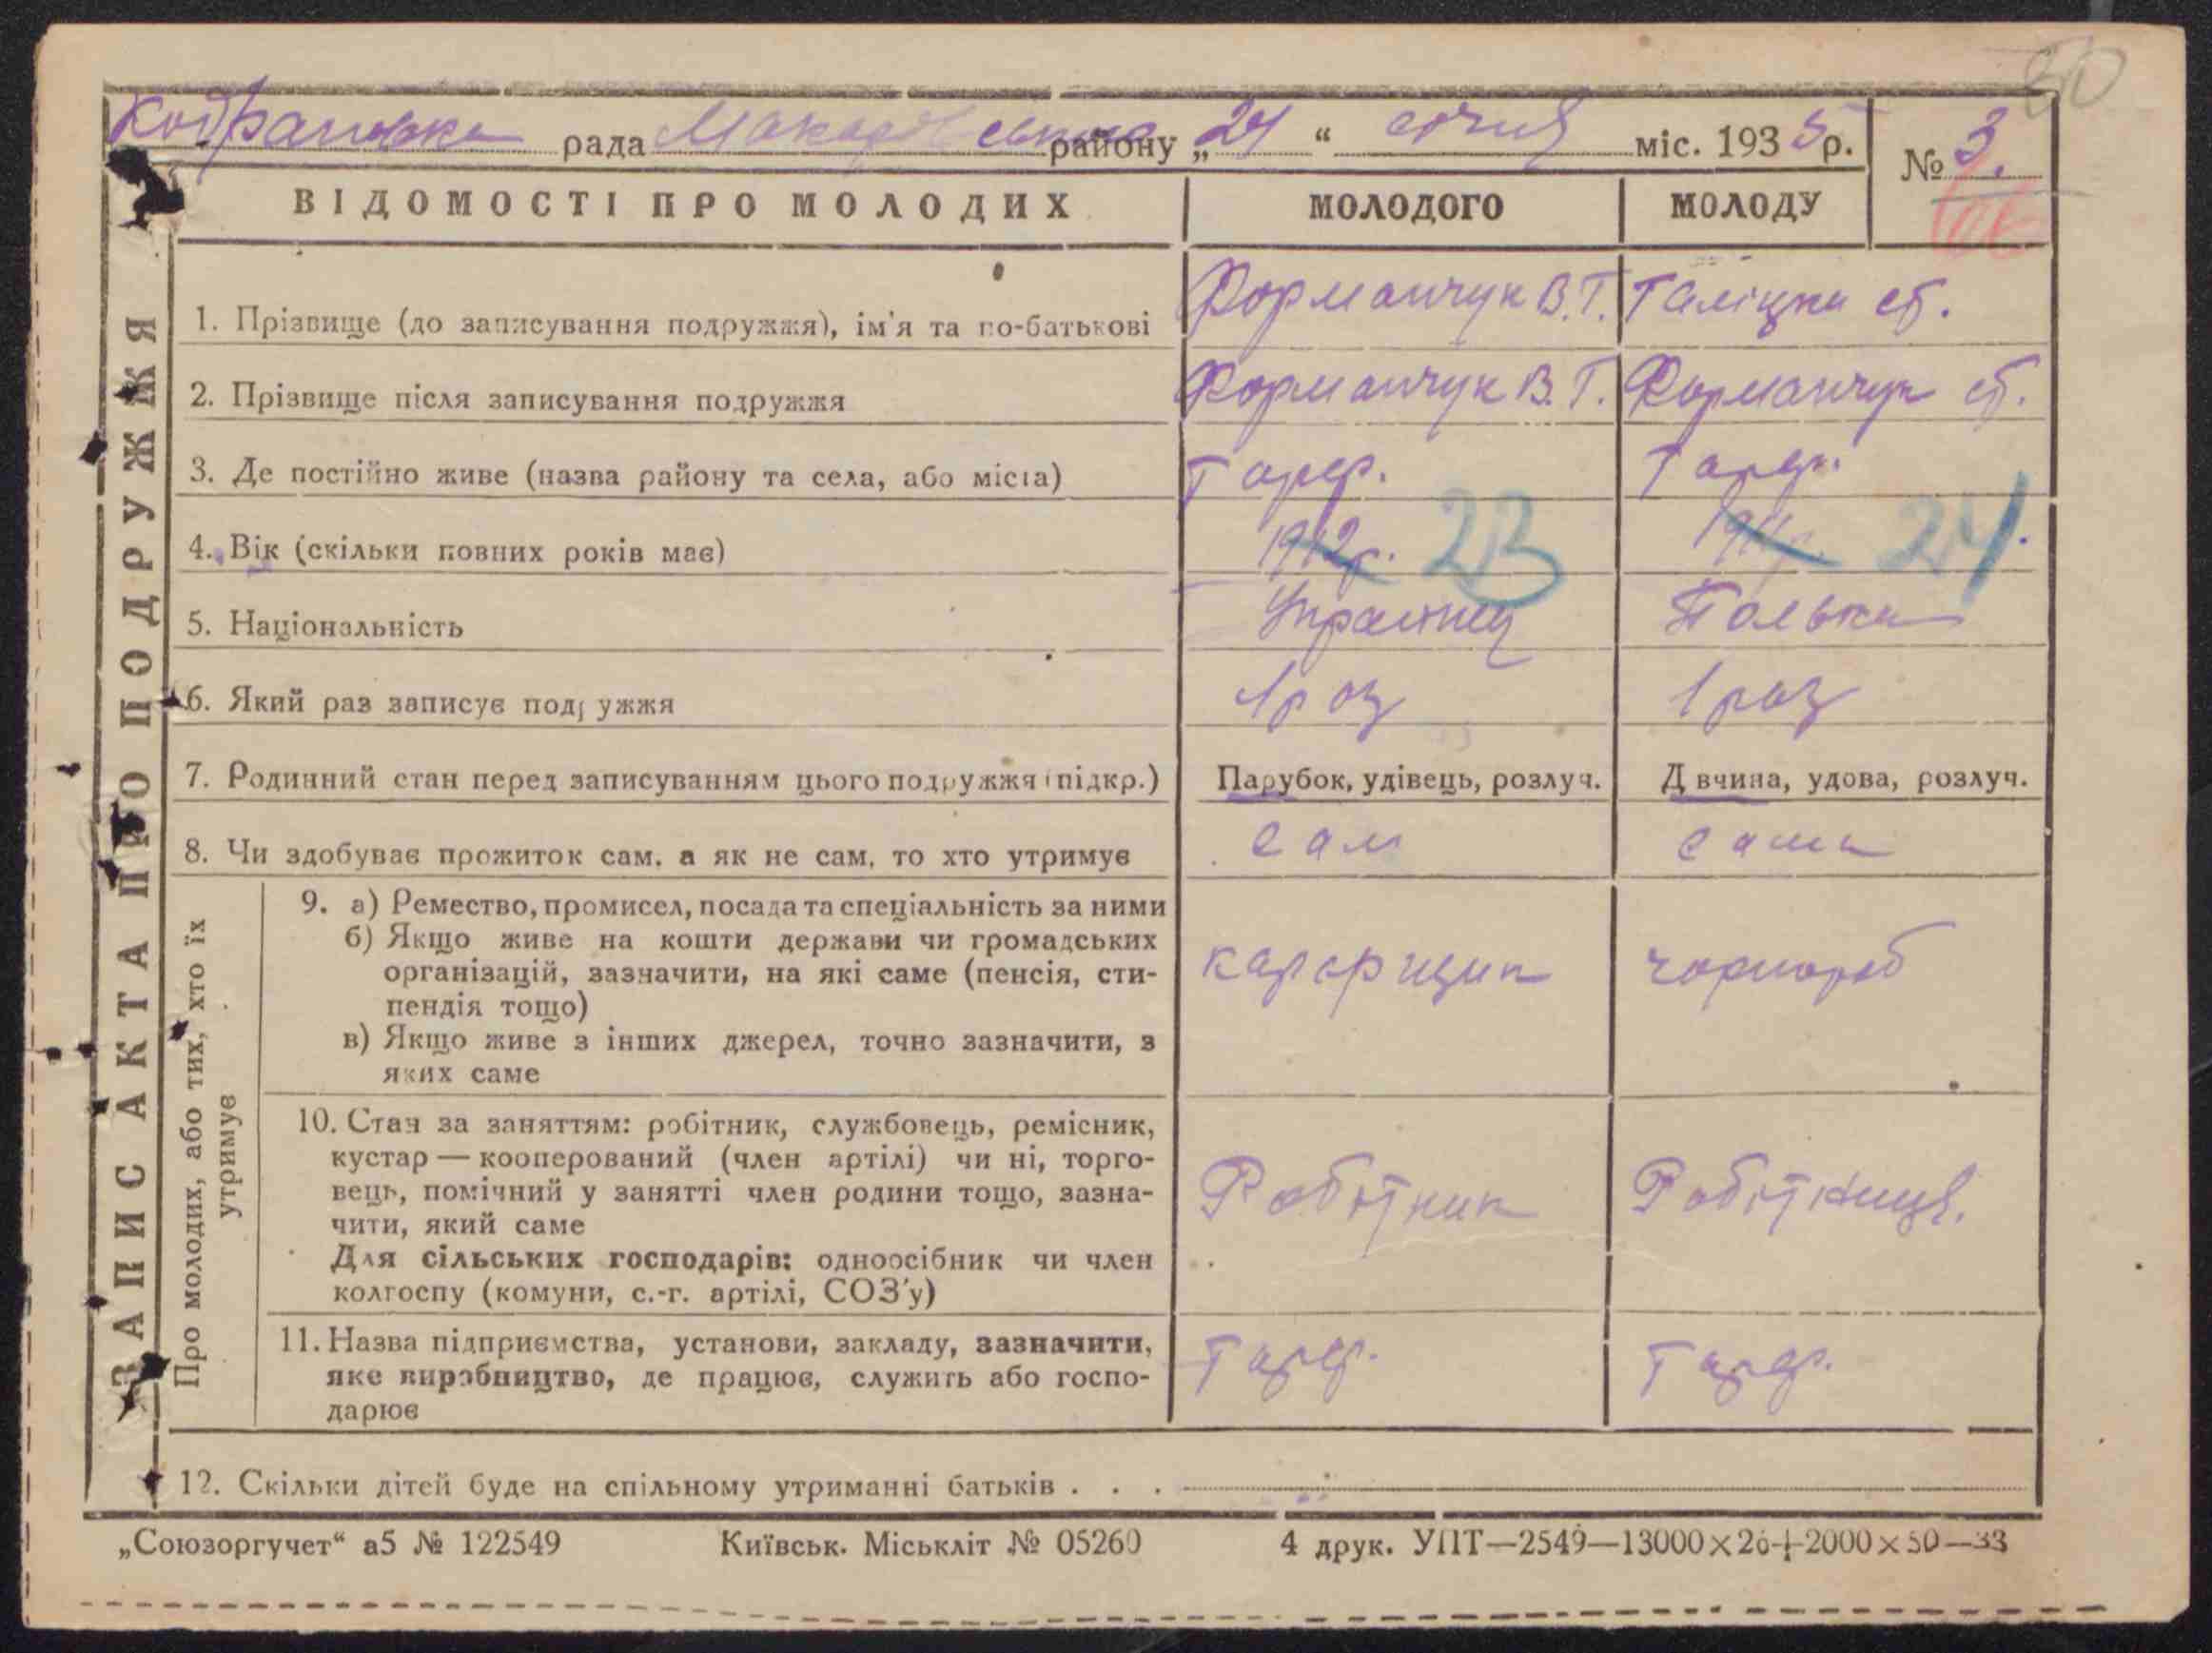 80
рада Макарівського району „24“ січня міс. 1935р. № 3.
ВІДОМОСТІ ПРО МОЛОДИХ МОЛОДОГО МОЛОДУ
ЗАПИС АКТА ПРО ПОДРУЖЖЯ
1. Прізвище (до записування подружжя), ім'я та по-батькові Форманчук В.Т. Галіцка
2. Прізвище після записування подружжя Форманчук В.Т. Форманчук
3. Де постійно живе (назва району та села, або міста)
4. Вік (скільки повних років має) 1912р. 23 1911р. 24.
5. Національність Українец Полька
6. Який раз записує подружжя 1 раз 1 раз
7. Родинний стан перед записуванням цього подружжя (підкр.) Парубок, удівець, розлуч. Д вчина, удова, розлуч.
8. Чи здобуває прожиток сам, а як не сам, то хто утримує сам сама
Про молодих, або тих, хто їх утримує
9. а) Ремество, промисел, посада та спеціальність за ними
б) Якщо живе на кошти держави чи громадських
організацій, зазначити, на які саме (пенсія, сти-
пендія тощо)
в) Якщо живе з інших джерел, точно зазначити, з
яких саме
чорнороб
10. Стан за заняттям: робітник, службовець, ремісник,
кустар — кооперований (член артілі) чи ні, торго-
вець, помічний у занятті член родини тощо, зазна-
чити, який саме
Для сільських господарів: одноосібник чи член
колгоспу (комуни, с.-г. артілі, СОЗ'у)
Робітник Робітниця.
11. Назва підприємства, установи, закладу, зазначити,
яке виробництво, де працює, служить або госпо-
дарює
12. Скільки дітей буде на спільному утриманні батьків . . .
„Союзоргучет“ а5 № 122549 Київськ. Міськліт № 05260 4 друк. УПТ—2549—13000×26+2000×50—33